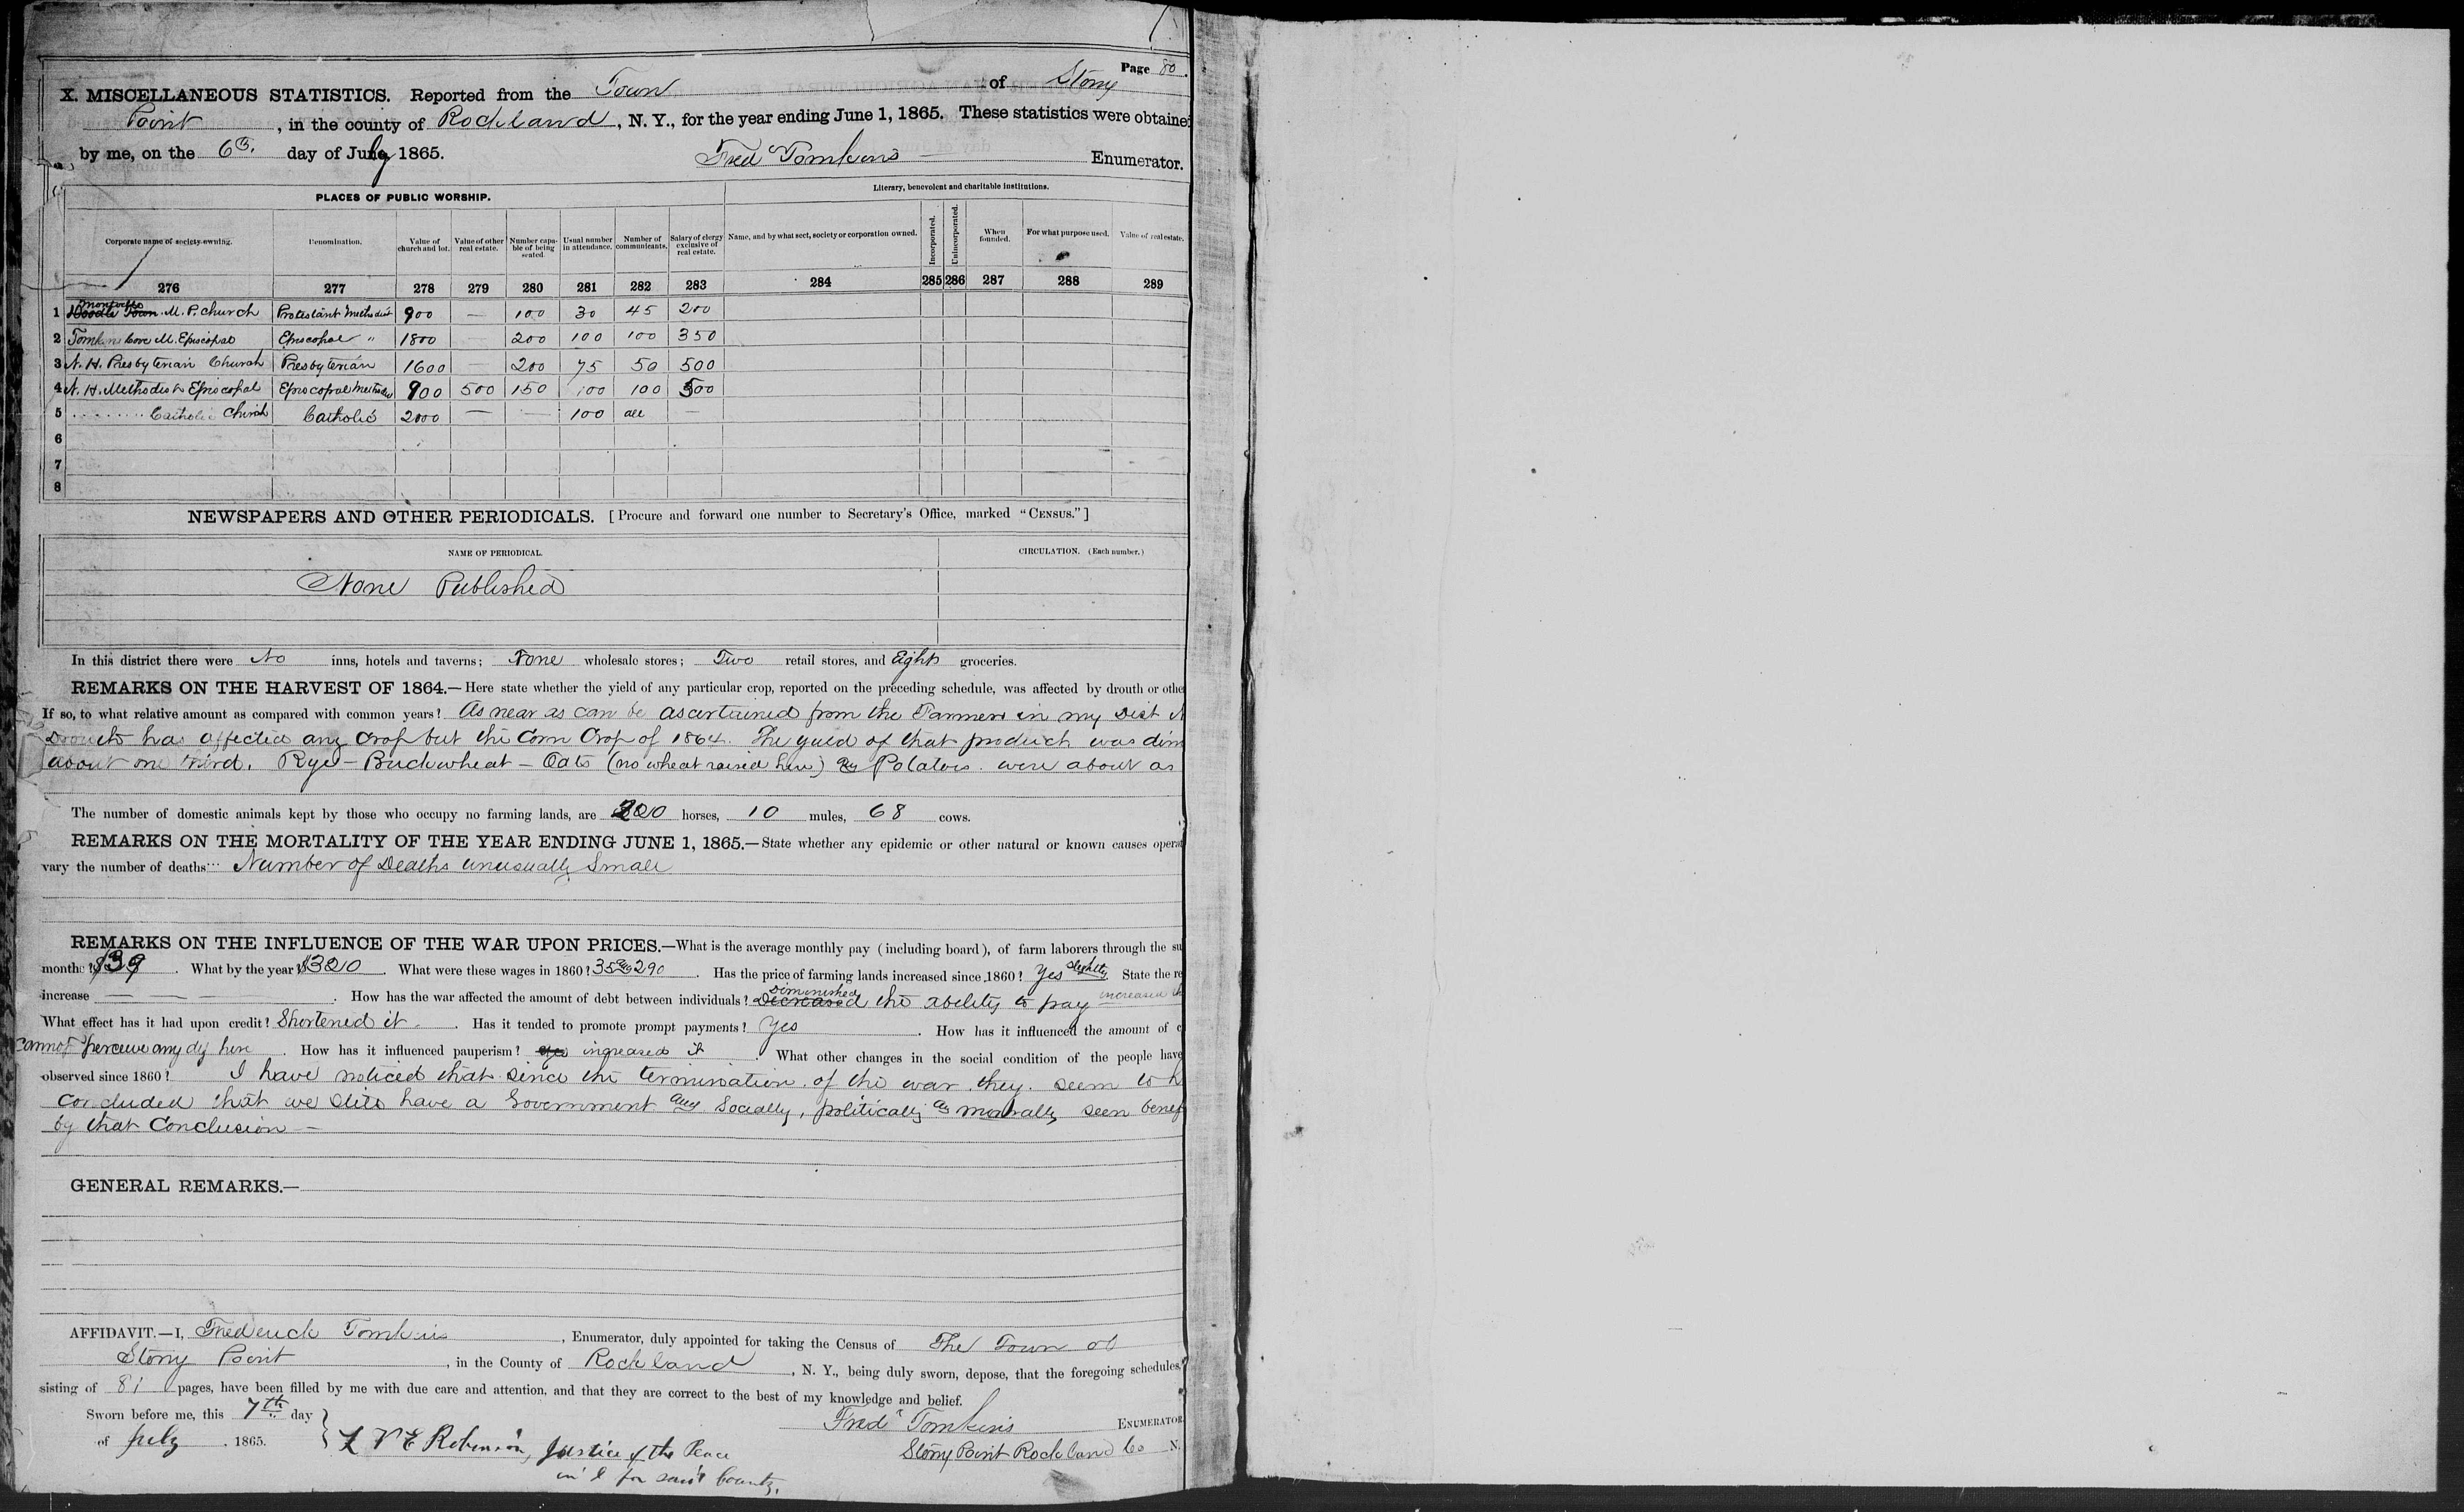 Page 80.
X. MISCELLANEOUS STATISTICS. Reported from the Town of Stony
Point, in the county of Rockland, N. Y., for the year ending June 1, 1865. These statistics were obtained
by me, on the 6th day of July 1865. Fred Tomkins Enumerator.
PLACES OF PUBLIC WORSHIP. Literary, benevolent and charitable institutions.
Corporate name of society owning. Denomination. Value of church and lot. Value of other real estate. Number capable of being seated. Usual number in attendance. Number of communicants. Salary of clergy exclusive of real estate. Name, and by what sect, society or corporation owned. Incorporated. Unincorporated. When founded. For what purpose used. Value of real estate.
276 277 278 279 280 281 282 283 284 285 286 287 288 289
1 Doodle Town Montville M. P. Church Protestant Methodist 900 — 100 30 45 200
2 Tomkins Cove M. Episcopal Episcopal " 1800 — 200 100 100 350
3 N. H. Presbyterian Church Presbyterian 1600 — 200 75 50 500
4 N. H. Methodist Episcopal Episcopal Methodist 900 500 150 100 100 500
5 ......... Catholic Church Catholic 2000 — — 100 all —
6
7
8
NEWSPAPERS AND OTHER PERIODICALS. [Procure and forward one number to Secretary's Office, marked "CENSUS."]
NAME OF PERIODICAL. CIRCULATION. (Each number.)
None Published
In this district there were No inns, hotels and taverns; None wholesale stores; Two retail stores, and Eight groceries.
REMARKS ON THE HARVEST OF 1864.—Here state whether the yield of any particular crop, reported on the preceding schedule, was affected by drouth or othe
If so, to what relative amount as compared with common years? As near as can be ascertained from the Farmers in my Dist N
Drouth has affected any Crop but the Corn Crop of 1864. The yield of that product was dim
about one third. Rye – Buckwheat – Oats (no wheat raised here) & Potatoes were about as
The number of domestic animals kept by those who occupy no farming lands, are 220 horses, 10 mules, 68 cows.
REMARKS ON THE MORTALITY OF THE YEAR ENDING JUNE 1, 1865.—State whether any epidemic or other natural or known causes opera
vary the number of deaths Number of Deaths unusually Small
REMARKS ON THE INFLUENCE OF THE WAR UPON PRICES.—What is the average monthly pay (including board), of farm laborers through the su
months? $39. What by the year? $320. What were these wages in 1860? 35 & 290. Has the price of farming lands increased since 1860? Yes slightly. State the re
increase — — —. How has the war affected the amount of debt between individuals? Decreased Diminished the ability to pay increased th
What effect has it had upon credit? Shortened it. Has it tended to promote prompt payments? Yes. How has it influenced the amount of c
Cannot perceive any dif here. How has it influenced pauperism? increased it. What other changes in the social condition of the people have
observed since 1860? I have noticed that since the termination of the war they seem to h
concluded that we still have a Government and Socially, politically & morally seen benef
by that Conclusion —
GENERAL REMARKS.—
AFFIDAVIT.—I, Frederick Tomkins, Enumerator, duly appointed for taking the Census of The Town of
Stony Point, in the County of Rockland, N. Y., being duly sworn, depose, that the foregoing schedules,
sisting of 81 pages, have been filled by me with due care and attention, and that they are correct to the best of my knowledge and belief.
Sworn before me, this 7th day Fredk Tomkins ENUMERATOR
of July, 1865. Robinson, Justice of the Peace Stony Point Rockland Co N.
in & for said County.